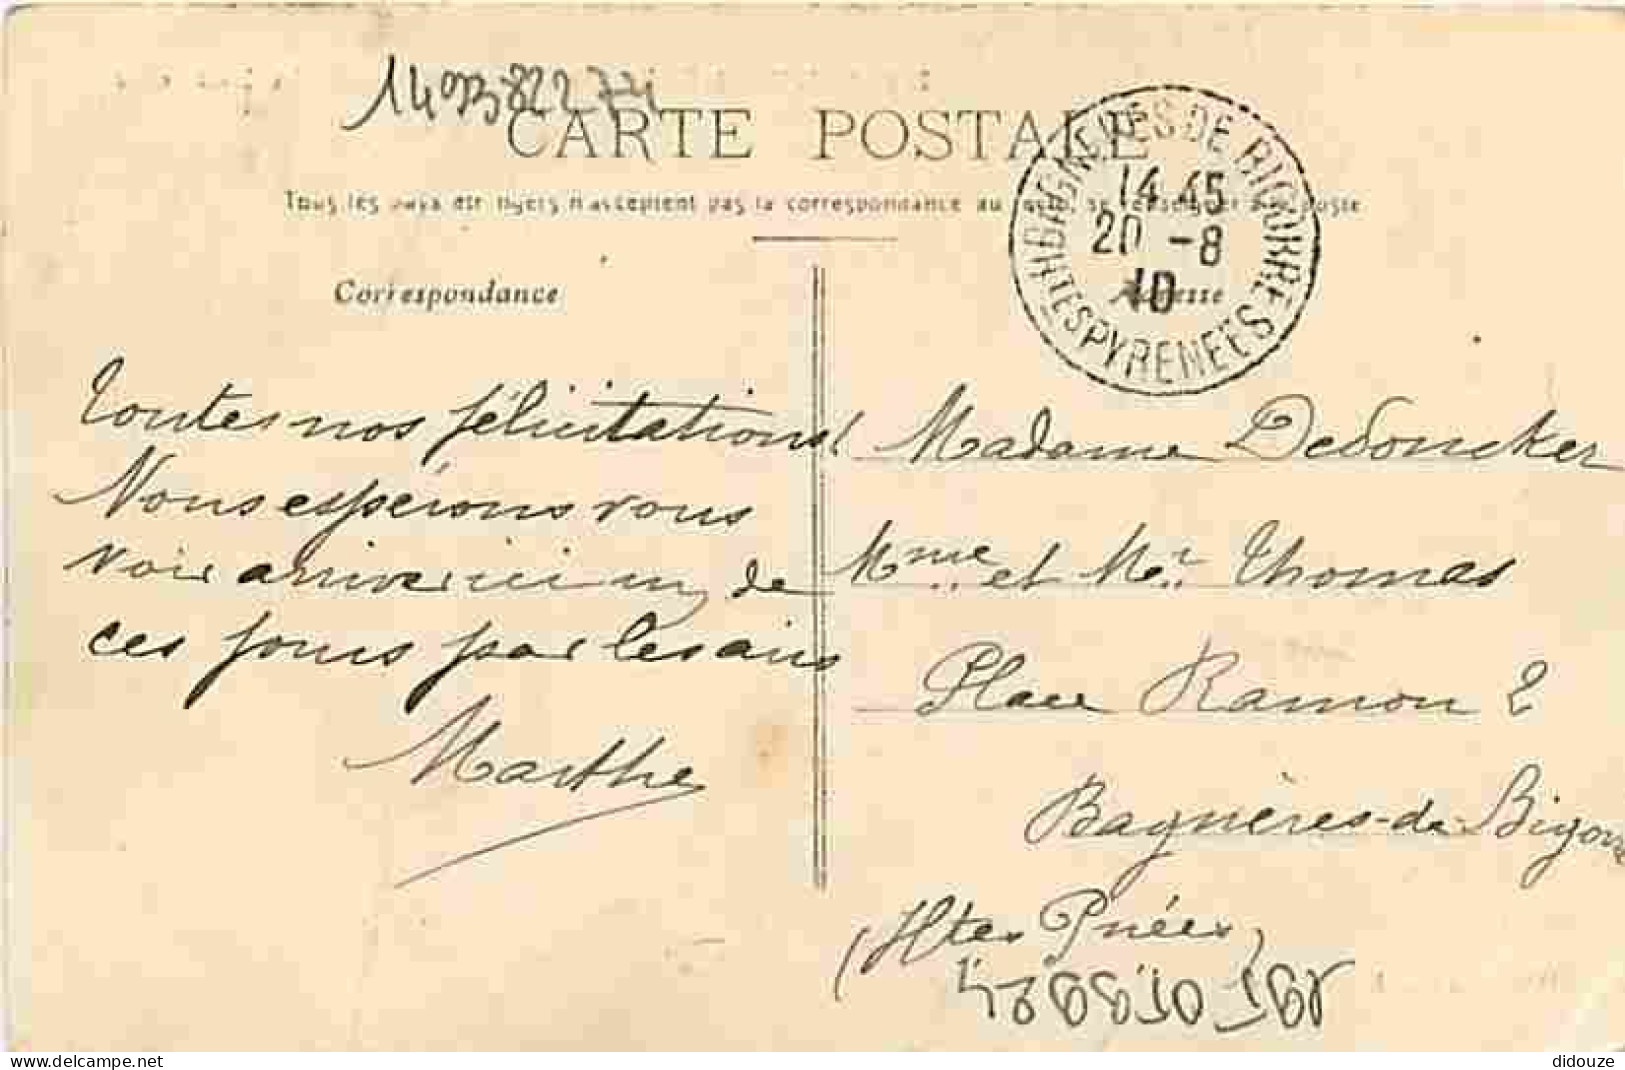 CARTE POSTALE
Tous les pays étrangers n'acceptent pas la correspondance au
BAGNERES DE BIGORRE
14 45
20 -8
10
HTES PYRENEES
Correspondance
Adresse
Toutes nos félicitations
Nous espérions vous
voir arriver ici un de
ces jours par les airs
Marthe
Madame Dedoncker
Mme et Mr Thomas
Place Ramon 2
Bagnères-de-Bigorre
(Htes Pnées)
didouze